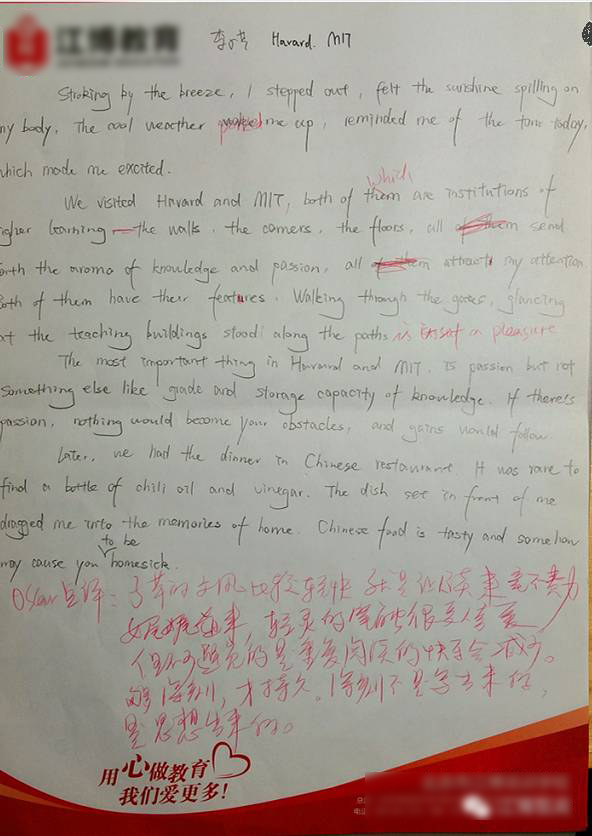 江博教育
Havard. MIT
Stroking by the breeze, I stepped out, felt the sunshine spilling on
my body. The cool weather me up, reminded me of the tour today,
which made me excited.
which
We visited Havard and MIT, both of them are institutions of
igher learning — the walls, the corners, the floors, all them send
orth the aroma of knowledge and passion, all them attract my attention.
Both of them have their features. Walking through the gates, glancing
at the teaching buildings stood along the paths is a pleasure
The most important thing in Harvard and MIT, is passion but not
something else like grade and storage capacity of knowledge. If there's
passion, nothing would become your obstacles, and gains would follow.
Later, we had the dinner in Chinese restaurant. It was rare to
find a bottle of chili oil and vinegar. The dish set in front of me
dragged me into the memories of home. Chinese food is tasty and somehow
to be
may cause you homesick.
Oscar点评：子萱的文风比较轻快 读来毫不费力
娓娓道来，轻灵的笔触很惹人喜爱
但不可避免的是重复阅读的快乐会减少。
够深刻，才持久。深刻不是写出来的，
是思想出来的。
用心做教育
我们爱更多！
江博教育